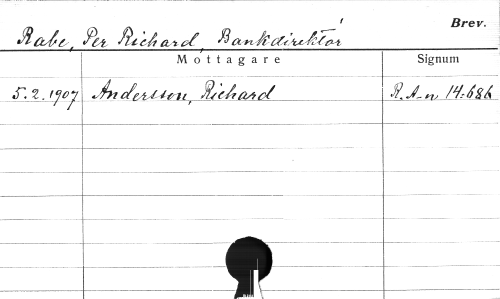 Brev.
Rabe, Per Richard, Bankdirektör
Mottagare Signum
5.2.1907 Andersson, Richard R.A-n 14:686